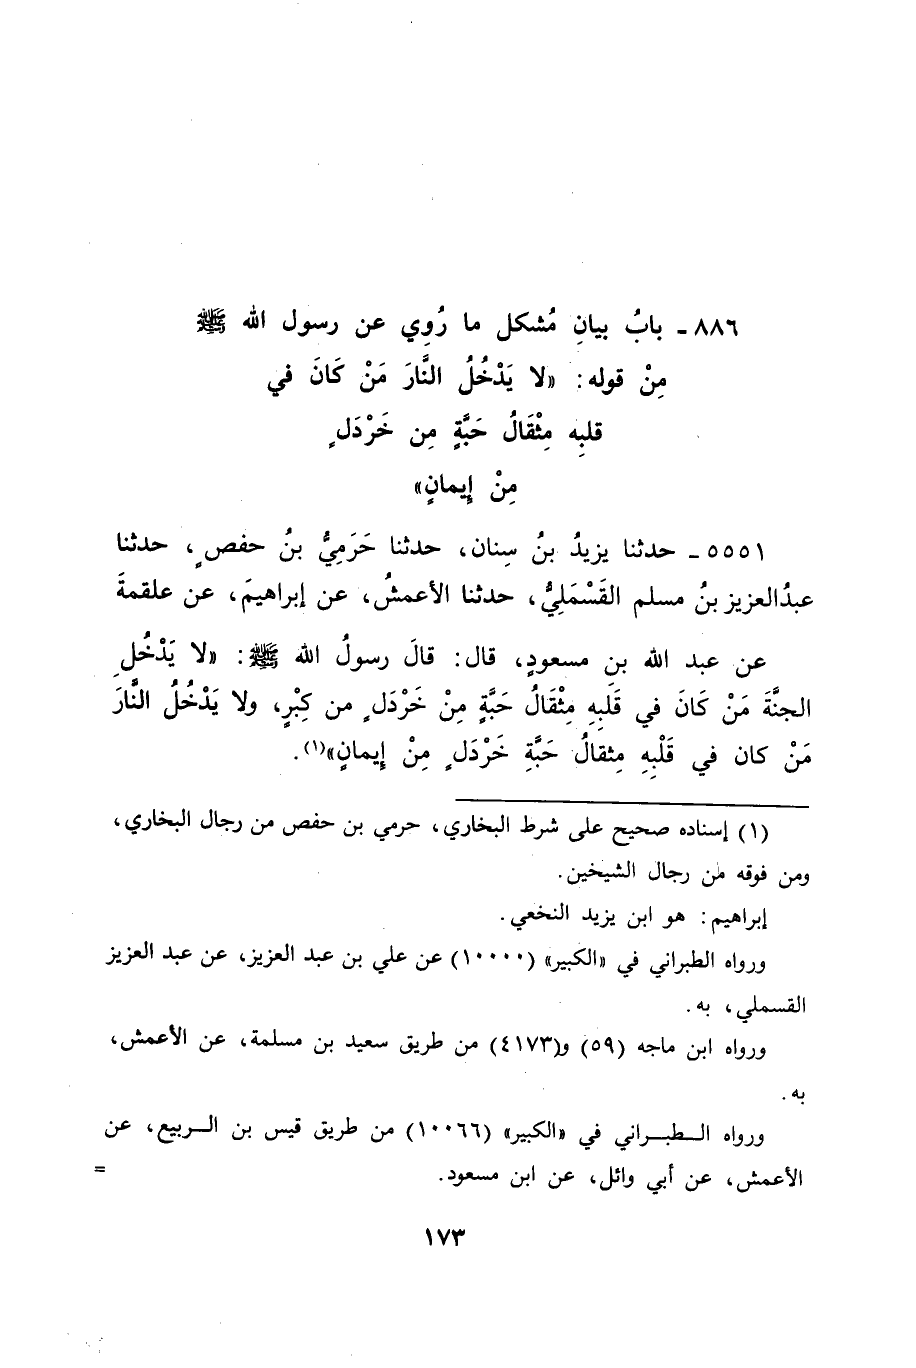 ٨٨٦ - بابُ بيانِ مُشكل ما رُوِي عن رسول الله ﷺ
مِنْ قوله: «لا يَدْخُلُ النَّارَ مَنْ كَانَ في
قلبِه مِثْقَالُ حَبَّةٍ مِن خَرْدَلٍ
مِنْ إِيمانٍ»
٥٥٥١ - حدثنا يزيدُ بنُ سِنان، حدثنا حَرَمِيُّ بنُ حفصٍ، حدثنا
عبدُالعزيز بنُ مسلم القَسْمَلِيُّ، حدثنا الأعمشُ، عن إبراهيمَ، عن علقمةَ
عن عبد الله بنِ مسعودٍ، قال: قالَ رسولُ الله ﷺ: «لا يَدْخُلِ
الجنَّةَ مَنْ كَانَ في قَلبِهِ مِثْقَالُ حَبَّةٍ مِنْ خَرْدَلٍ من كِبْرٍ، ولا يَدْخُلُ النَّارَ
مَنْ كان في قَلْبِهِ مِثقالُ حَبَّةِ خَرْدَلٍ مِنْ إِيمانٍ»(١).
(١) إسناده صحيح على شرط البخاري، حرمي بن حفص من رجال البخاري،
ومن فوقه من رجال الشيخين.
إبراهيم: هو ابن يزيد النخعي.
ورواه الطبراني في «الكبير» (١٠٠٠٠) عن علي بن عبد العزيز، عن عبد العزيز
القسملي، به.
ورواه ابن ماجه (٥٩) و(٤١٧٣) من طريق سعيد بن مسلمة، عن الأعمش،
به.
ورواه الطبراني في «الكبير» (١٠٠٦٦) من طريق قيس بن الربيع، عن
الأعمش، عن أبي وائل، عن ابن مسعود. =
١٧٣